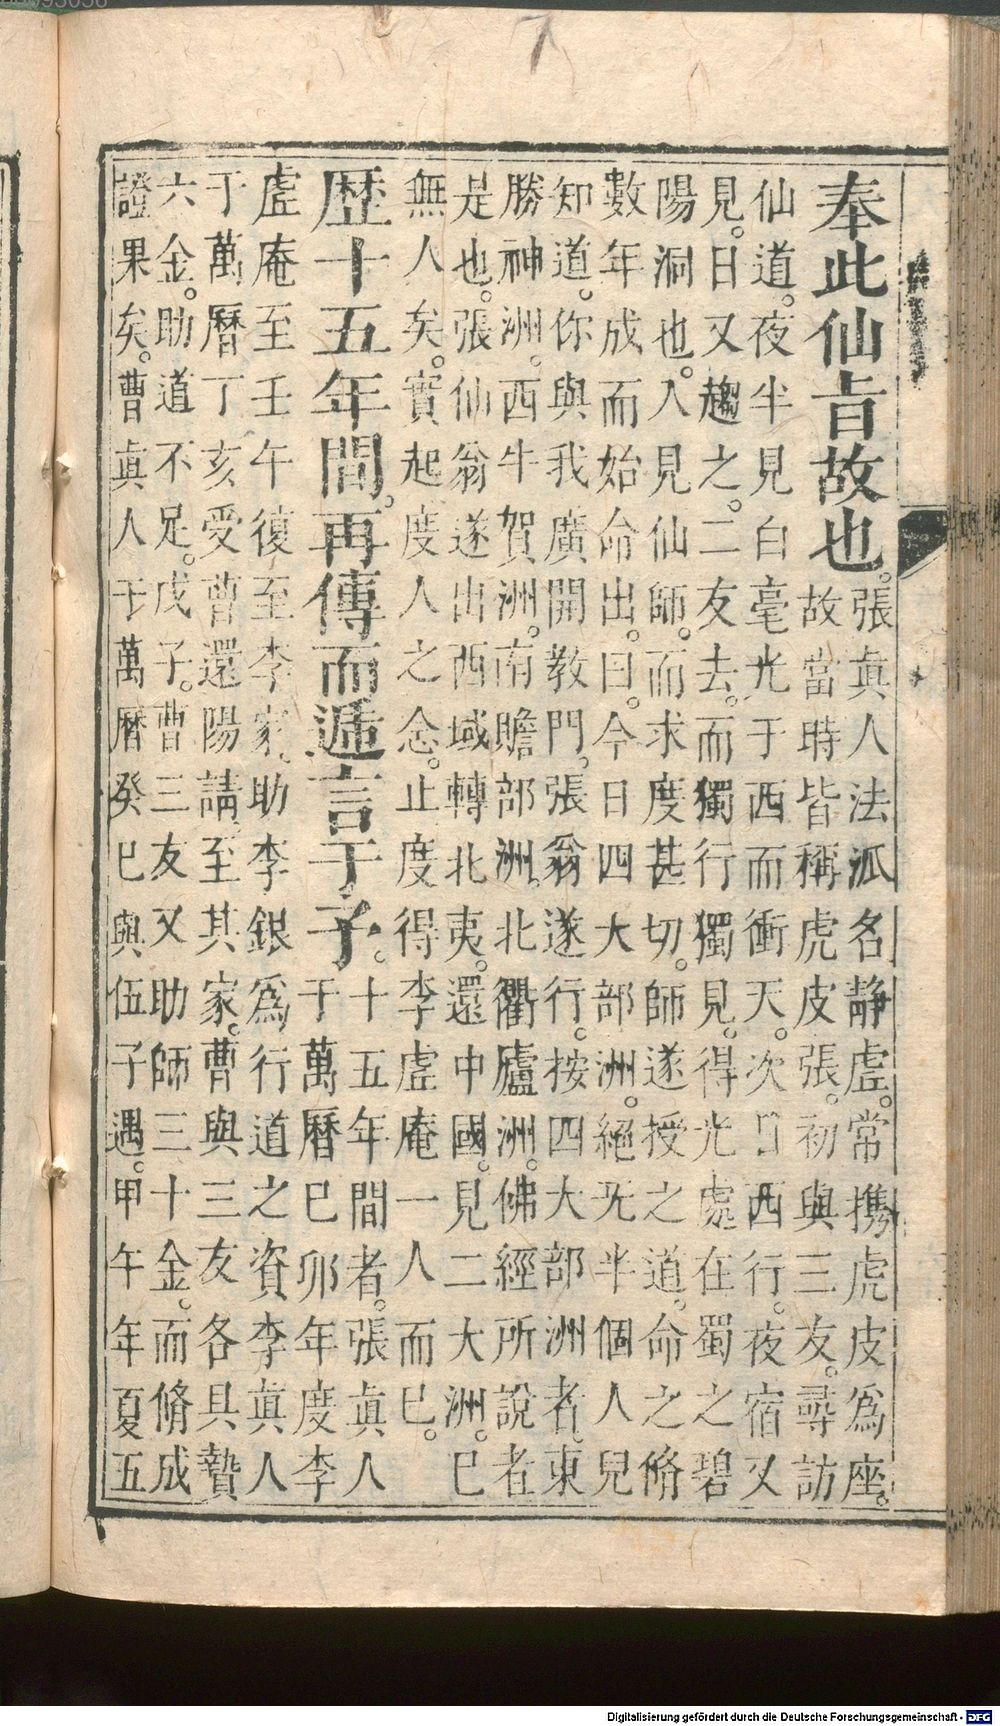 奉此仙旨故也。張眞人法派名静虛。常携虎皮爲座。
故當時皆稱虎皮張。初與三友。尋訪
仙道。夜半見白毫光于西而衝天。次日西行。夜宿又
見。日又趨之。二友去。而獨行獨見。得光處在蜀之碧
陽洞也。入見仙師。而求度甚切。師遂授之道。命之脩
數年成而始命出。曰。今日四大部洲。絕无半個人兒
知道。你與我廣開教門。張翁遂行。按四大部洲者。東
勝神洲。西牛賀洲。南贍部洲。北衢廬洲。佛經所說者
是也。張仙翁遂出西域轉北夷。還中國。見二大洲。已
無人矣。實起度人之念。止度得李虛庵一人而已。
歷十五年間。再傳而逓言于子。十五年間者。張眞人
于萬曆已卯年度李
虛庵至壬午復至李家。助李銀爲行道之資李眞人
于萬曆丁亥受曹還陽請。至其家。曹與三友各具贄
六金。助道不足。戊子。曹三友又助師三十金。而脩成
證果矣。曹眞人于萬曆癸巳與伍子遇。甲午年夏五
Digitalisierung gefördert durch die Deutsche Forschungsgemeinschaft - DFG